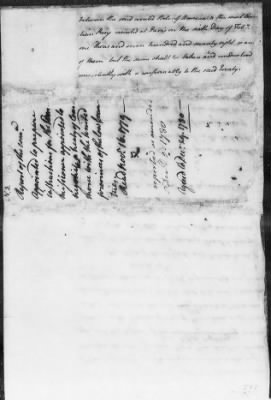 between the said united States of America & the most Chris-
tian King concluded at Paris on the sixth Day of Feby
one thousand seven hundred and seventy eight or any
of them but the same shall be taken and understood
consistently with & conformably to the said Treaty.
No. 2
Report of the comee
appointed to prepare
instructions for the Com-
missioner appointed to
negotiate a treaty of Com-
merce with the united
provinces of the low Coun-
tries
Read Novr 16. 1779
reported as amended
1780
Agreed to Decr 29. 1780